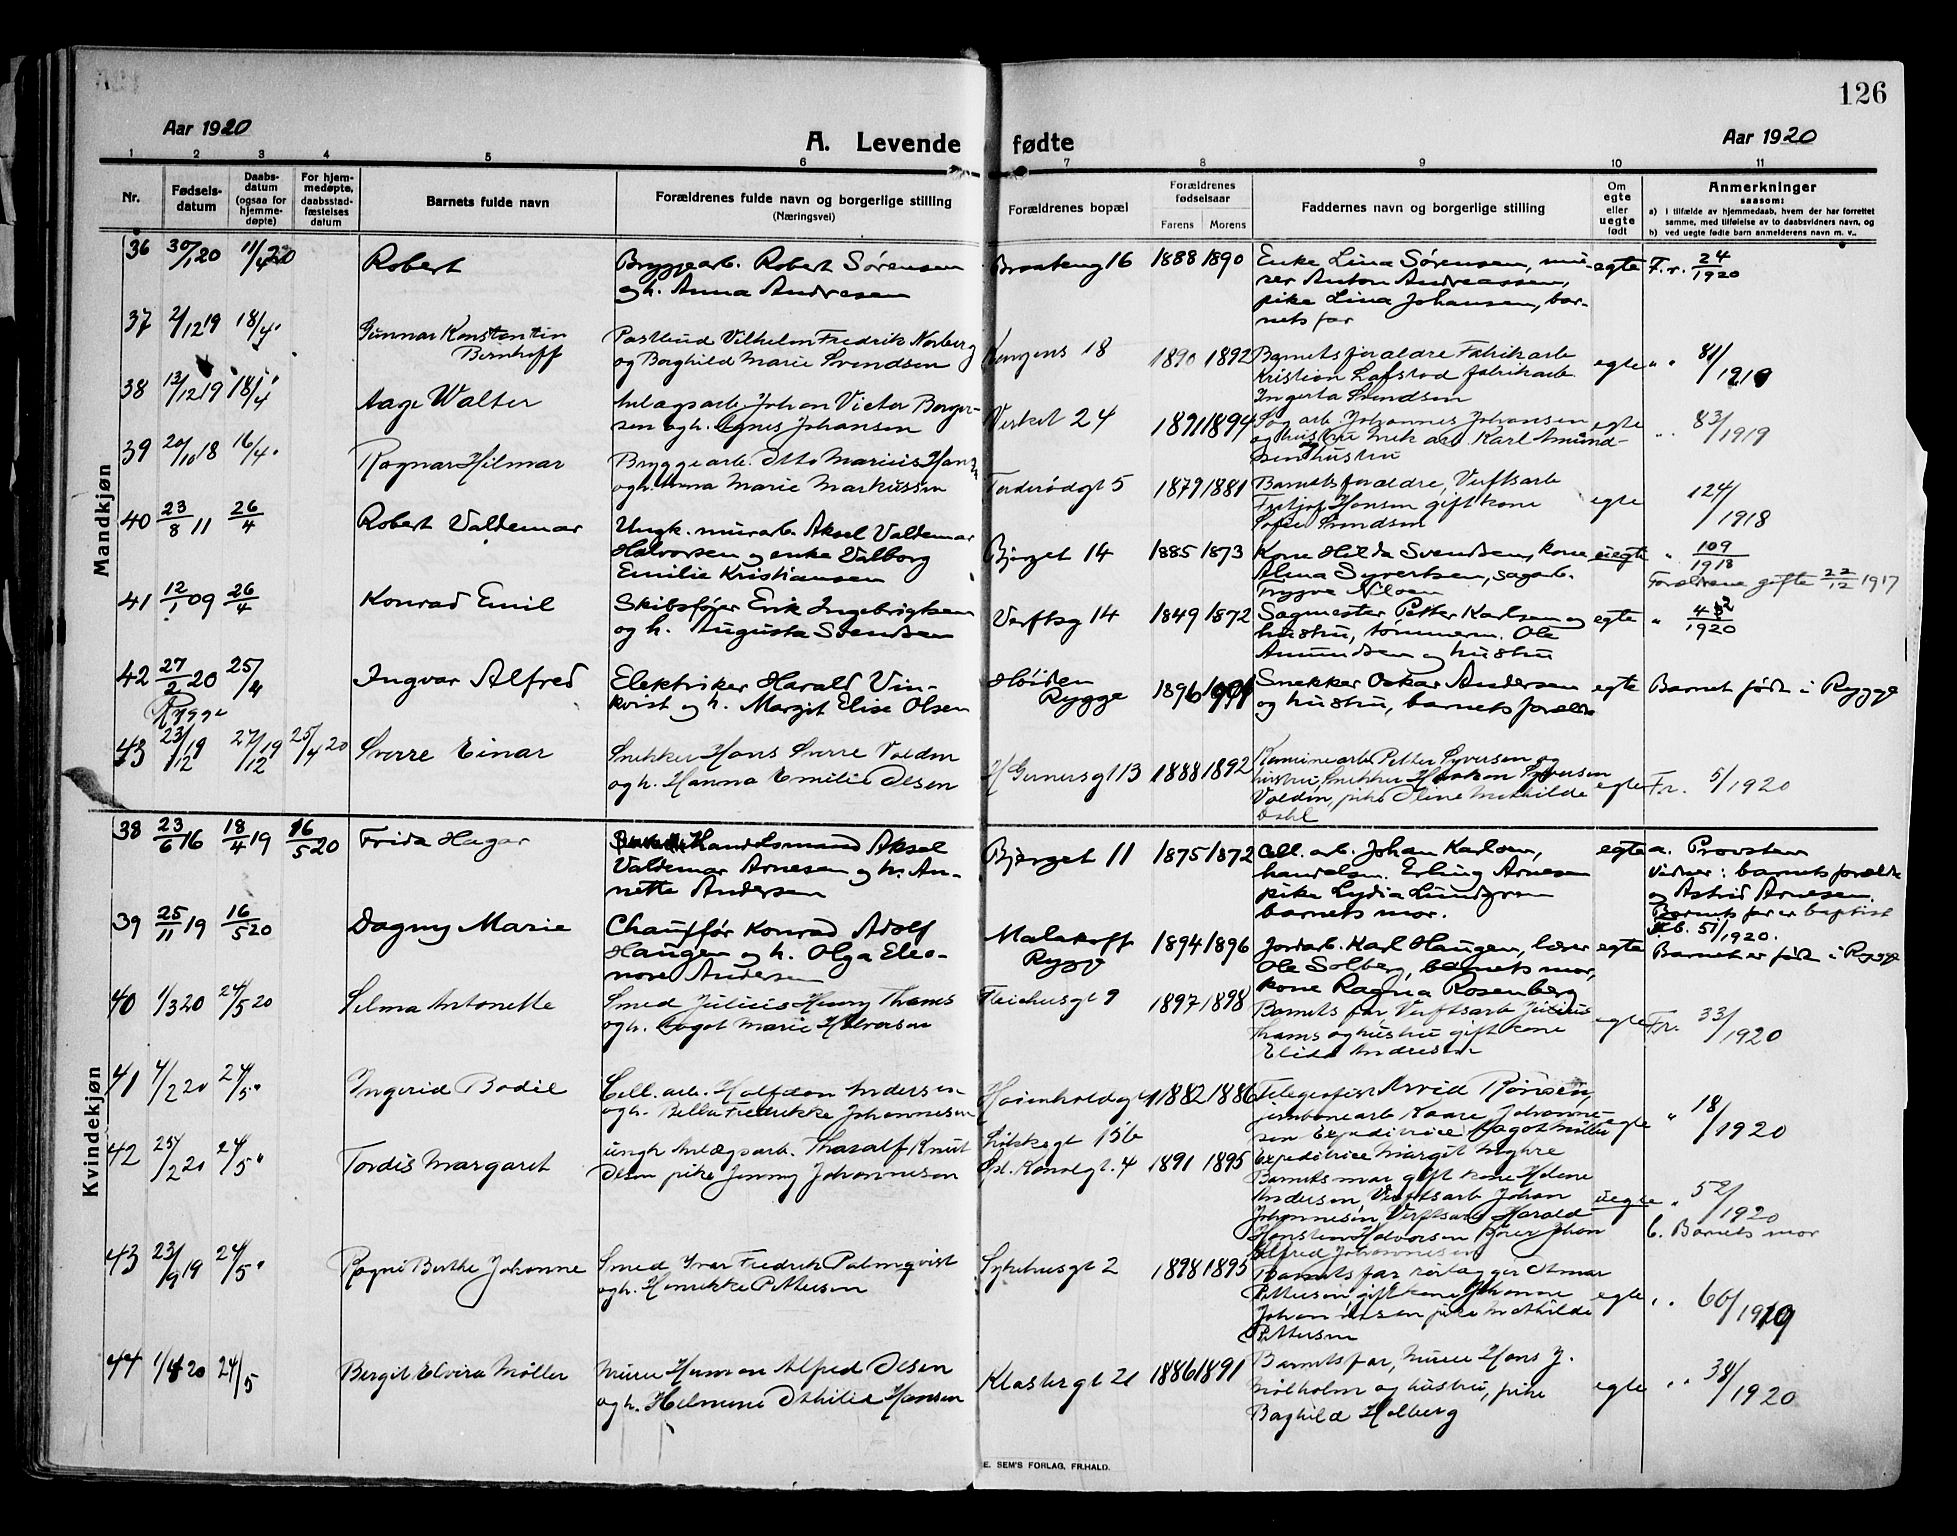 126
Aar 1920
A. Levende fødte
Aar 1920
1 2 3 4 5 6 7 8 9 10 11
Nr.
Fødsels-
datum
Daabs-
datum
(ogsaa for
hjemme-
døpte)
For hjem-
medøpte,
daabsstad-
fæstelses
datum
Barnets fulde navn
Forældrenes fulde navn og borgerlige stilling
(Næringsvei)
Forældrenes bopæl
Forældrenes
fødselsaar
Farens Morens
Faddernes navn og borgerlige stilling
Om
egte
eller
uegte
født
Anmerkninger
saasom:
a) i tilfælde av hjemmedaab, hvem der har forrettet
samme, med tilføielse av to daabsvidners navn, og
b) ved uegte fødte barn anmelderens navn m. v.,
Mandkjøn
36 30/1 20 11/4 20 Robert
Bryggearb. Robert Sørensen
og h. Anna Andresen
Braateng 16 1888 1890
Enke Lina Sørensen, mu-
rer Anton Andreassen,
pike Lina Johansen, bar-
nets far
egte F.r. 24/1920
37 2/12 19 18/4 "
Gunnar Konstantin
Bernhoff
Postbud Vilhelm Fredrik Norberg
og Borghild Marie Svendsen
Kongens 18 1890 1892
Barnets forældre Fabrikarb
Kristian Lafstad fabrikarb.
Ingerta Svendsen
egte " " 81/1919
38 13/12 19 18/4 " Aage Walter
Anlægsarb. Johan Victor Borger-
sen og h. Agnes Johansen
Verket 24 1891 1894
Sag arb Johannes Johansen
og hustru Mek arb Karl Amund-
sen og hustru
egte " " 83/1919
39 20/10 18 16/4 " Ragnar Hilmar
Bryggearb. Otto Marius Hansen
og h. Anna Marie Markussen
Torderødgt 5 1879 1881
Barnets forældre, Verftsarb
Fritjof Hansen gift kone
Sofie Svendsen
egte 124/1918
40 23/8 11 26/4 Robert Valdemar
Ungk. murarb. Aksel Valdemar
Halvorsen og enke Valborg
Emilie Kristiansen
Bjerget 14 1885 1873
Kone Hilda Svendsen, kone
Alma Syvertsen, sagarb.
Trygve Nilsen
uegte " 109/1918
Forældrene gifte 22/12 1917
41 12/1 09 26/4 Konrad Emil
Skibsfører Erik Ingebrigtsen
og h. Augusta Svendsen
Verftsg 14 1849 1872
Sagmester Petter Karlsen og
hustru, tømmerm. Ole
Amundsen og hustru
egte " 42/1920
42 27/2 20 25/4 Ingvar Alfred
Rygge
Elektriker Harald Vin-
kvist og h. Margit Elise Olsen
Høiden
Rygge
1896
Snekker Oskar Andersen
og hustru, barnets forældre
egte Barnet født i Rygge
43 23/12 19 27/12 19 25/4 20 Sverre Einar
Snekker Hans Sverre Valdin
og h. Hanna Emilie Olsen
H Gernersgt 13 1888 1892
Kaminearb Petter Syversen og
hustru, Snekker Haakon Syversen
Valdin, pike Oline Mathilde
Dahl
egte F.r. 5/1920
Kvindekjøn
38 23/6 16 18/4 19 16/5 20 Frida Hagar
Handelsmand Aksel
Valdemar Arnesen og h. An-
nette Andersen
Bjerget 11 1875 1872
Cell. arb. Johan Karlsen,
handelsm. Erling Arnesen
pike Lydia Lundgren
barnets mor.
egte a. Provsten
Vidner: barnets forældre
og Astrid Arnesen.
Barnets far er baptist
51/1920.
39 25/11 19 16/5 20 Dagny Marie
Chauffør Konrad Adolf
Haugen og h. Olga Eleo-
nore Andersen
Malakoff
Rygge
1894 1896
Jordarb. Karl Haugen, lærer
Ole Solberg, barnets mor,
kone Ragna Rosenberg
egte Barnet er født i Rygge
40 1/3 20 24/5 20 Selma Antonette
Smed Julius Henry Thams
og h. Dagot Marie Halvorsen
Fleichusgt 9 1897 1898
Barnets far, Verftsarb Julius
Thams og hustru gift kone
Elida Andresen
egte F.r. 33/1920
41 4/2 20 24/5 " Ingerid Bodil
Cell. arb. Halfdan Andersen
og h. Bella Fredrikke Johannesen
Høienholdgt 1882 1886
Telegrafist Arvid Rönsen,
jernbanearb Kaare Johanne-
sen Expeditrice Dagot Møller
expeditrice Margit Myhre
egte " 18/1920
42 25/2 20 24/5 " Tordis Margaret
ungk Anlægsarb. Tharalf Knut
Olsen pike Jenny Johannesen
Solskogt 15b
Øst. Kanalgt. 4 1891 1895
Barnets mor gift kone Helene
Andersen, Verftsarb Johan
Johannesen Verftsarb Harald
Hansteen Halvorsen Borer Johan
Alfred Johannesen
uegte " 52/1920
b. Barnets mor
43 23/9 19 24/5 " Ragni Berthe Johanne
Smed Ivar Fredrik Palmqvist
og h. Henrikke Pettersen
Sykehusgt 2 1898 1895
Barnets far rørlægger Otmar
Pettersen gift kone Johanne
Johannesen pike Mathilde
Pettersen
egte " " 66/1919
44 1/4 20 24/5 Bergit Elvira Møller
Murer Herman Alfred Olsen
og h. Helmine Othilie Hansen
Klostergt 21 1886 1891
Barnets far, Murer Hans J.
Mølholm og hustru, pike
Baghild Holberg
egte " " 38/1920
E. SEM'S FORLAG, FR.HALD.